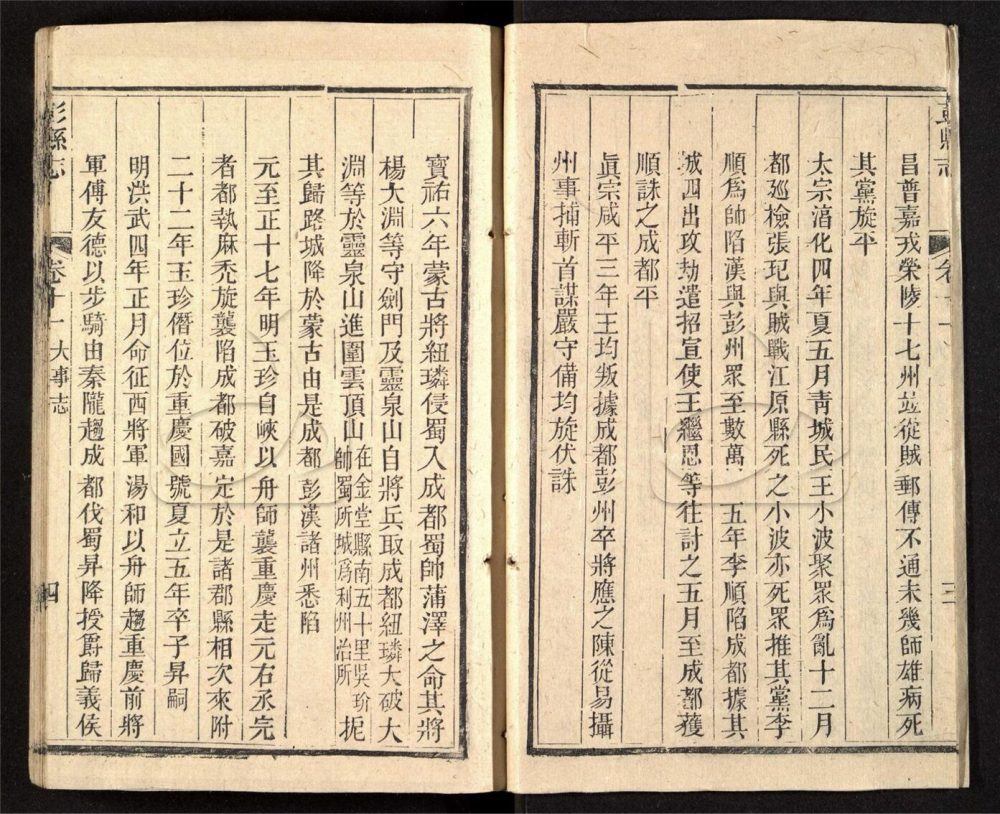 昌普嘉戎榮陵十七州並從賊郵傳不通未幾師雄病死
其黨旋平
太宗淳化四年夏五月靑城民王小波聚眾爲亂十二月
都廵檢張玘與賊戰江原縣死之小波亦死眾推其黨李
順爲帥陷漢與彭州眾至數萬 五年李順陷成都據其
城四出攻劫遣招宣使王繼恩等往討之五月至成都獲
順誅之成都平
眞宗咸平三年王均叛據成都彭州卒將應之陳從易攝
州事捕斬首謀嚴守備均旋伏誅
彭縣志 卷十 三
寶祐六年蒙古將紐璘侵蜀入成都蜀帥蒲澤之命其將
楊大淵等守劍門及靈泉山自將兵取成都紐璘大破大
淵等於靈泉山進圍雲頂山在金堂縣南五十里吳玠帥蜀所城爲利州治所扼
其歸路城降於蒙古由是成都 彭漢諸州悉陷
元至正十七年明玉珍自峽以舟師襲重慶走元右丞完
者都執麻禿旋襲陷成都破嘉定於是諸郡縣相次來附
二十二年玉珍僭位於重慶國號夏立五年卒子昇嗣
明洪武四年正月命征西將軍湯和以舟師趨重慶前將
軍傅友德以步騎由秦隴趨成都伐蜀昇降授爵歸義侯
彭縣志 卷十一大事志 四